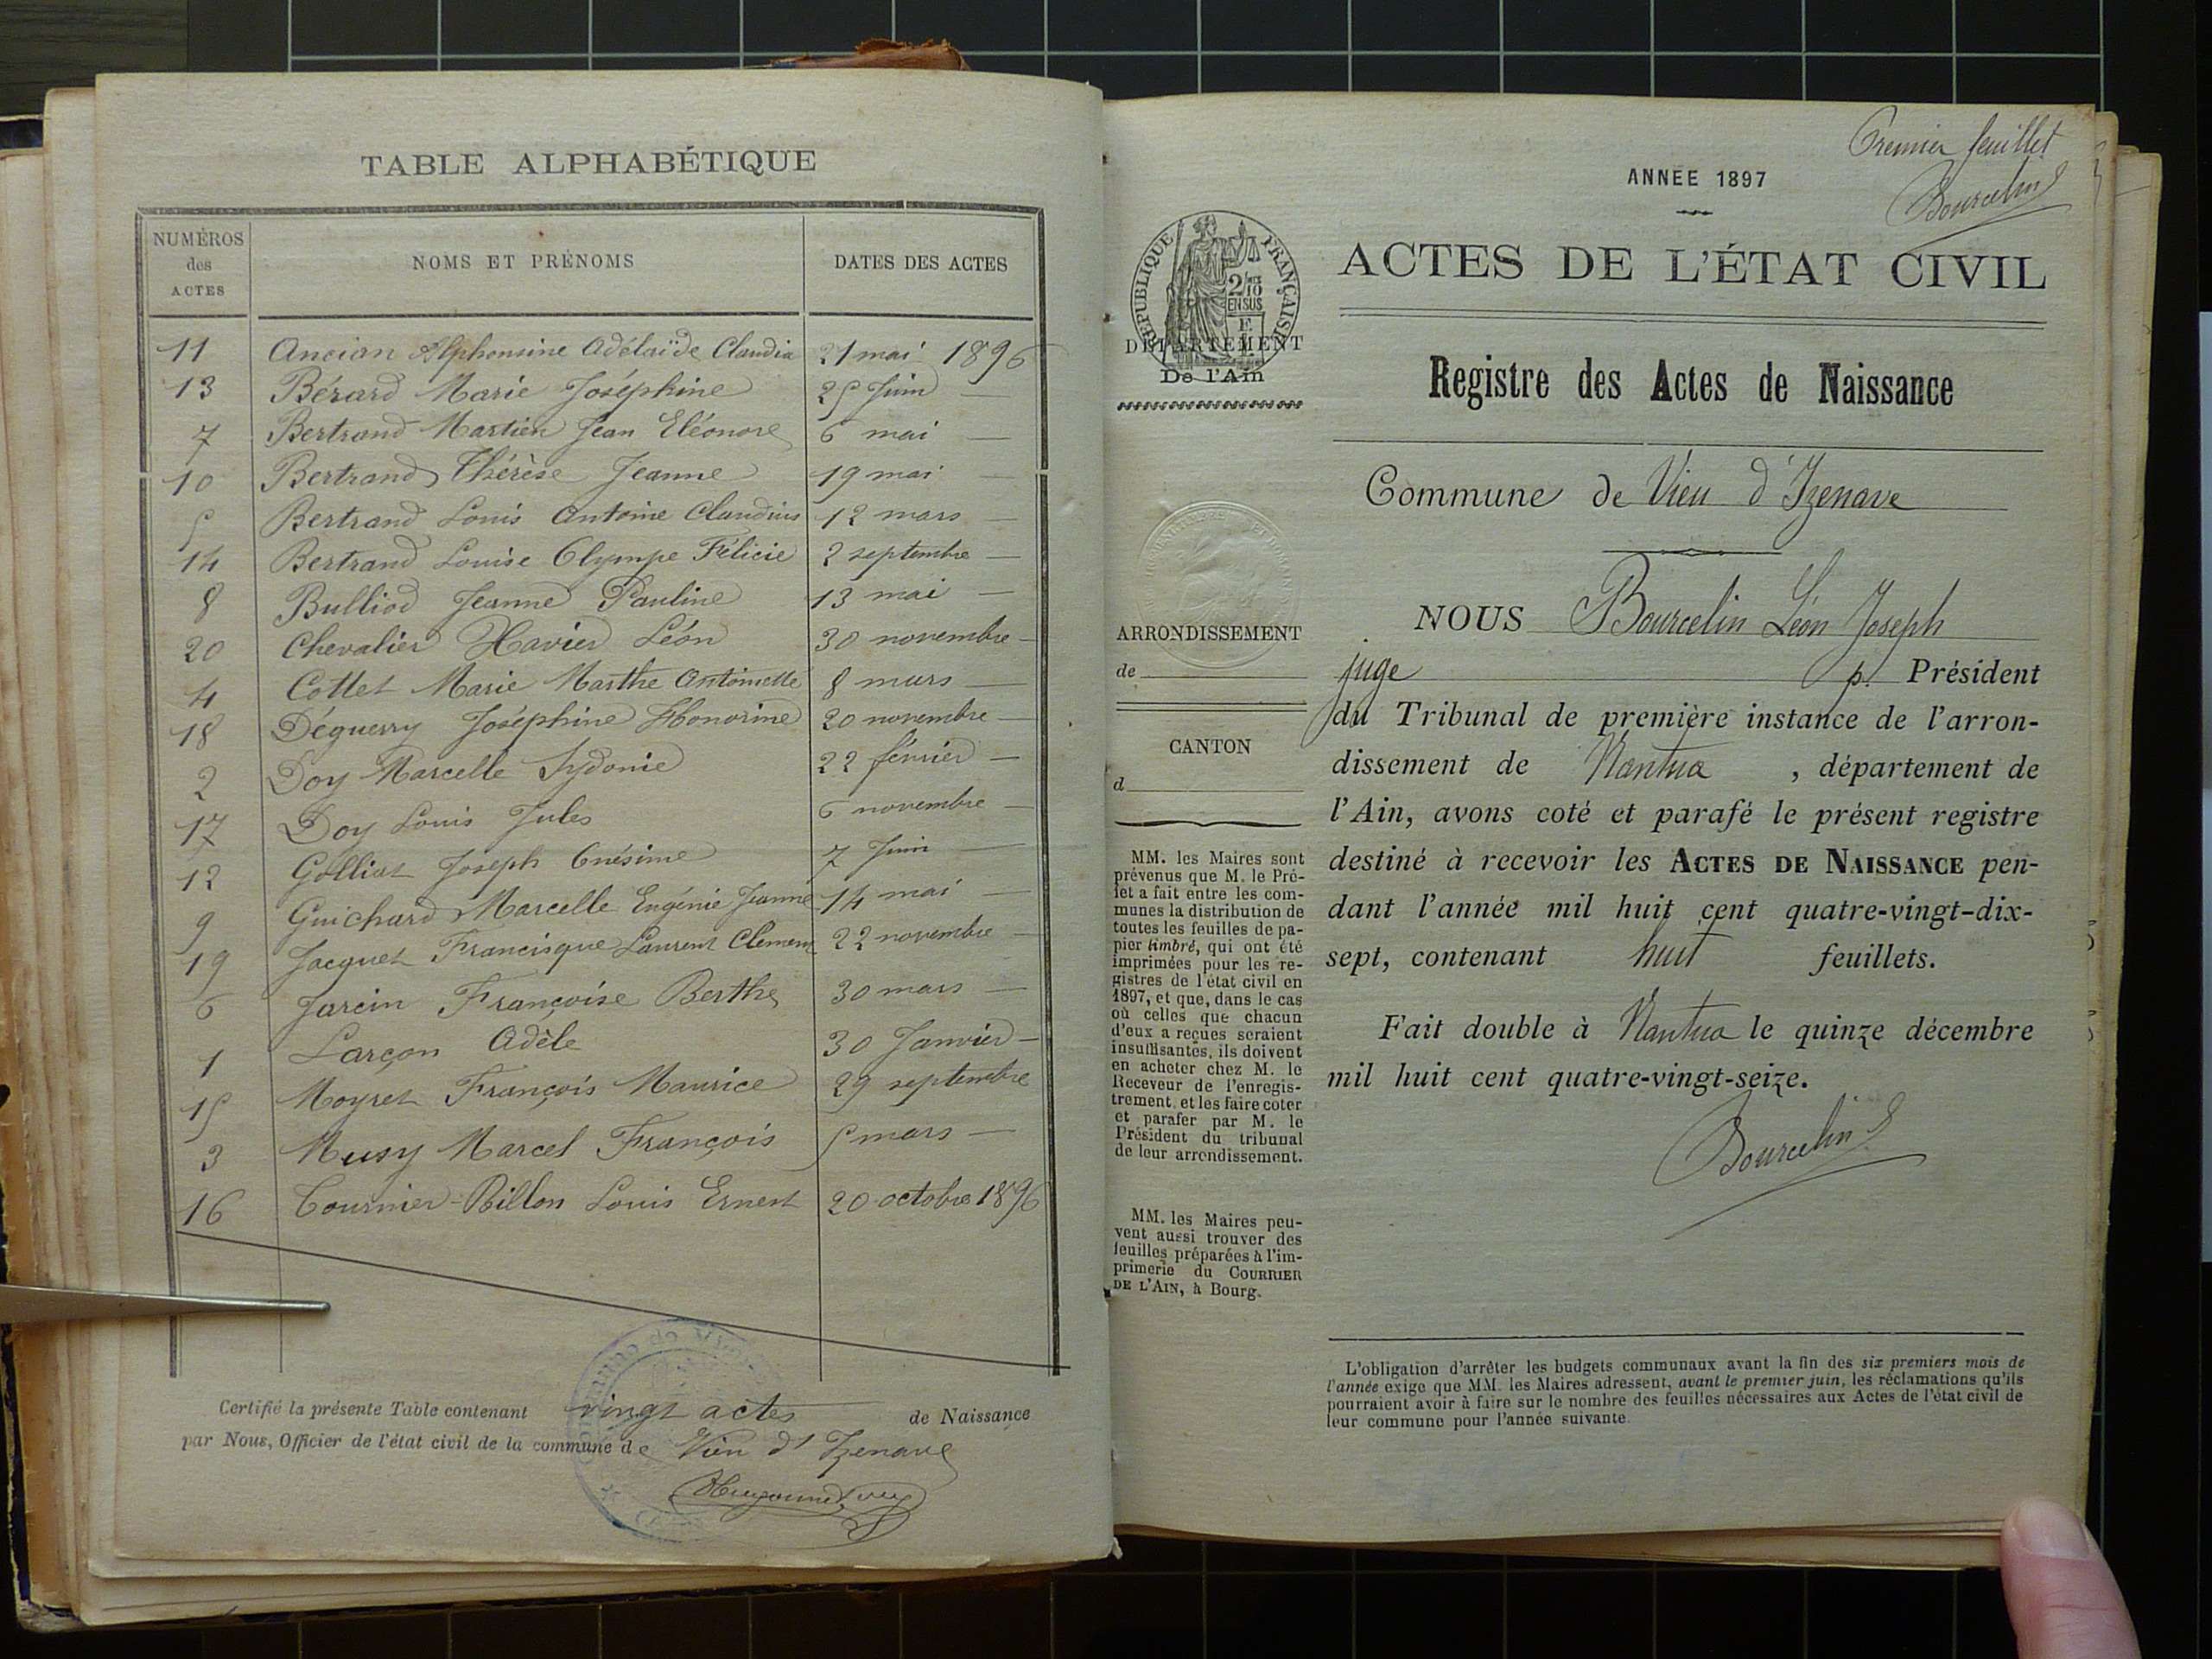 TABLE ALPHABÉTIQUE
NUMÉROS des ACTES
NOMS ET PRÉNOMS
DATES DES ACTES
11 Ancian Alphonsine Adélaïde Claudia 21 mai 1896
13 Bérard Marie Joséphine 25 Juin —
7 Bertrand Martien Jean Eléonore 6 mai —
10 Bertrand Thérèse Jeanne 19 mai —
5 Bertrand Louis Antoine Claudius 12 mars —
14 Bertrand Louise Olympe Félicie 2 septembre —
8 Bulliod Jeanne Pauline 13 mai —
20 Chevalier Xavier Léon 30 novembre —
4 Cottet Marie Marthe Antoinette 8 mars —
18 Déguerry Joséphine Honorine 20 novembre —
2 Doy Marcelle Sydonie 22 février —
17 Doy Louis Jules 6 novembre —
12 Golliat Joseph Onésime 7 Juin —
9 Guichard Marcelle Eugénie Jeanne 14 mai —
19 Jacquet Francisque Laurent Clément 22 novembre —
6 Jarcin Françoise Berthe 30 mars —
1 Larçon Adèle 30 Janvier —
15 Moyret François Maurice 29 septembre
3 Musy Marcel François 5 mars —
16 Tournier-Billon Louis Ernest 20 octobre 1896
Certifié la présente Table contenant vingt actes de Naissance
par Nous, Officier de l'état civil de la commune de Vieu d'Izenave
Premier feuillet
Bourcelin
ANNÉE 1897
RÉPUBLIQUE FRANÇAISE
2/10 EN SUS
DÉPARTEMENT
De l'Ain
ACTES DE L'ÉTAT CIVIL
Registre des Actes de Naissance
Commune de Vieu d'Izenave
ARRONDISSEMENT
de
CANTON
d
MM. les Maires sont
prévenus que M. le Pré-
fet a fait entre les com-
munes la distribution de
toutes les feuilles de pa-
pier timbré, qui ont été
imprimées pour les re-
gistres de l'état civil en
1897, et que, dans le cas
où celles que chacun
d'eux a reçues seraient
insuffisantes, ils doivent
en acheter chez M. le
Receveur de l'enregis-
trement, et les faire coter
et parafer par M. le
Président du tribunal
de leur arrondissement.
MM. les Maires peu-
vent aussi trouver des
feuilles préparées à l'im-
primerie du COURRIER
DE L'AIN, à Bourg.
NOUS Bourcelin Léon Joseph
juge p. Président
du Tribunal de première instance de l'arron-
dissement de Nantua, département de
l'Ain, avons coté et parafé le présent registre
destiné à recevoir les ACTES DE NAISSANCE pen-
dant l'année mil huit cent quatre-vingt-dix-
sept, contenant huit feuillets.
Fait double à Nantua le quinze décembre
mil huit cent quatre-vingt-seize.
Bourcelin
L'obligation d'arrêter les budgets communaux avant la fin des six premiers mois de
l'année exige que MM. les Maires adressent, avant le premier juin, les réclamations qu'ils
pourraient avoir à faire sur le nombre des feuilles nécessaires aux Actes de l'état civil de
leur commune pour l'année suivante.